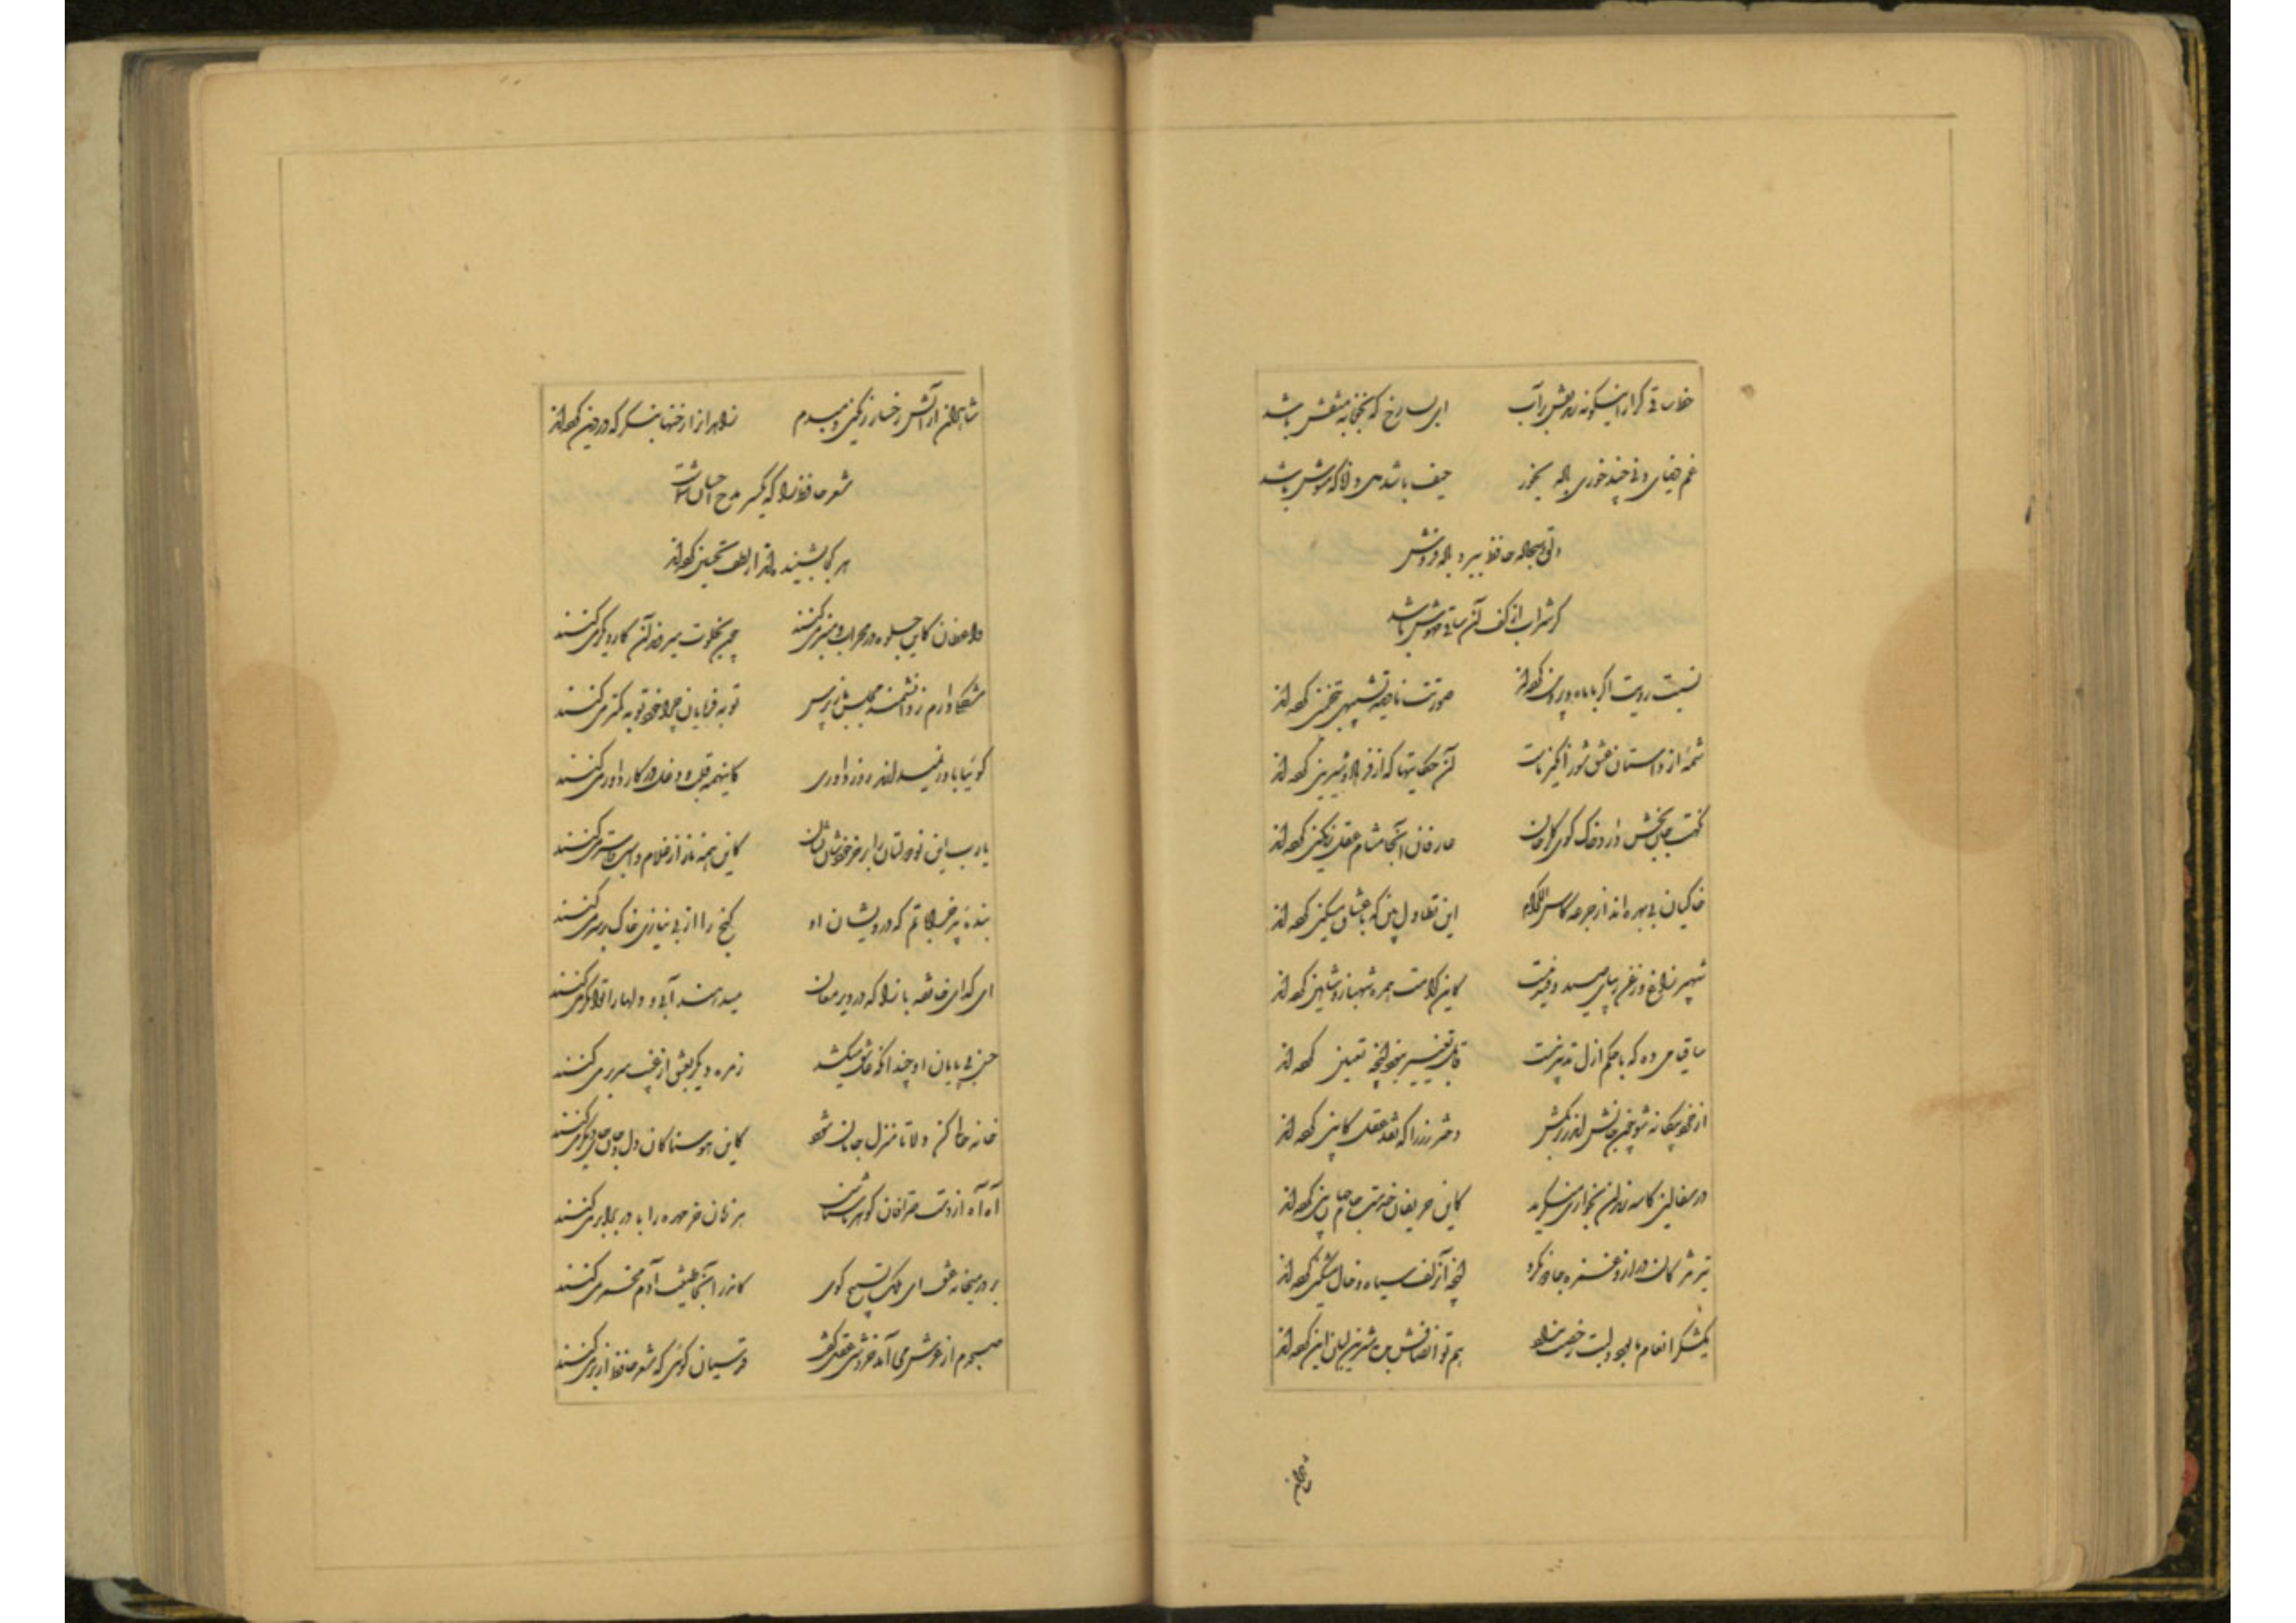 خط ساقی گر ازینگونه زند نقش بر آب ای بسا رخ که بخونابه منقش باشد
غم دنیای دنی چند خوری باده بخور حیف باشد دل دانا که مشوش باشد
دلق و سجاده حافظ ببرد باده فروش
گر شراب از کف آن ساقی مهوش باشد
نسبت رویت اگر با ماه و پروین کرده‌اند صورت نادیده تشبیهی بتخمین کرده‌اند
شمهٔ از داستان عشق شورانگیز ماست آن حکایتها که از فرهاد و شیرین کرده‌اند
نکهت جان بخش دارد خاک کوی گلرخان عارفان آنجا مشام عقل مشکین کرده‌اند
خاکیان بی بهره‌اند از جرعه کاس الکرام این تطاول بین که با عشاق مسکین کرده‌اند
شهپر زاغ و زغن زیبای صید و قید نیست کاین کرامت همره شهباز و شاهین کرده‌اند
ساقیا می ده که با حکم ازل تدبیر نیست قابل تغییر نبود آنچه تعیین کرده‌اند
از خرد بیگانه شو چون جانش اندر بر کش دختر رز را که نقد عقل کابین کرده‌اند
در سفالین کاسه رندان بخواری منگرید کاین حریفان خدمت جام جهان بین کرده‌اند
تیر مژگان دراز و غمزه جادو نکرد آنچه آن زلف سیاه و خال مشکین کرده‌اند
یک شکر انعام ما بود و لبت رخصت نداد هم تو انصافش بده شیرین لبان این کرده‌اند
شاهدان از آتش رخسار رنگین دمبدم زاهدان را رخنها بنگر که در دین کرده‌اند
شعر حافظ را که یکسر مدح احسان شماست
هر کجا بشنیده‌اند از لطف تحسین کرده‌اند
واعظان کاین جلوه در محراب و منبر میکنند چون بخلوت میروند آن کار دیگر میکنند
مشکلی دارم ز دانشمند مجلس باز پرس توبه فرمایان چرا خود توبه کمتر میکنند
گوئیا باور نمیدارند روز داوری کاینهمه قلب و دغل در کار داور میکنند
یارب این نودولتان را بر خر خودشان نشان کاین همه ناز از غلام و اسب و استر میکنند
بندهٔ پیر خراباتم که درویشان او گنج را از بی نیازی خاک بر سر میکنند
ای گدای خانقه بازآ که در دیر مغان میدهند آبی و دلها را توانگر میکنند
حسن بی پایان او چندانکه عاشق میکشد زمره دیگر بعشق از غیب سر بر میکنند
خانه خالی کن دلا تا منزل جانان شود کاین هوسناکان دل و جان جای دیگر میکنند
آه آه از دست صرافان گوهر ناشناس هر زمان خرمهره را با در برابر میکنند
بر در میخانه عشق ای ملک تسبیح گوی کاندر آنجا طینت آدم مخمر میکنند
صبحدم از عرش می‌آمد خروشی عقل گفت قدسیان گوئی که شعر حافظ از بر میکنند